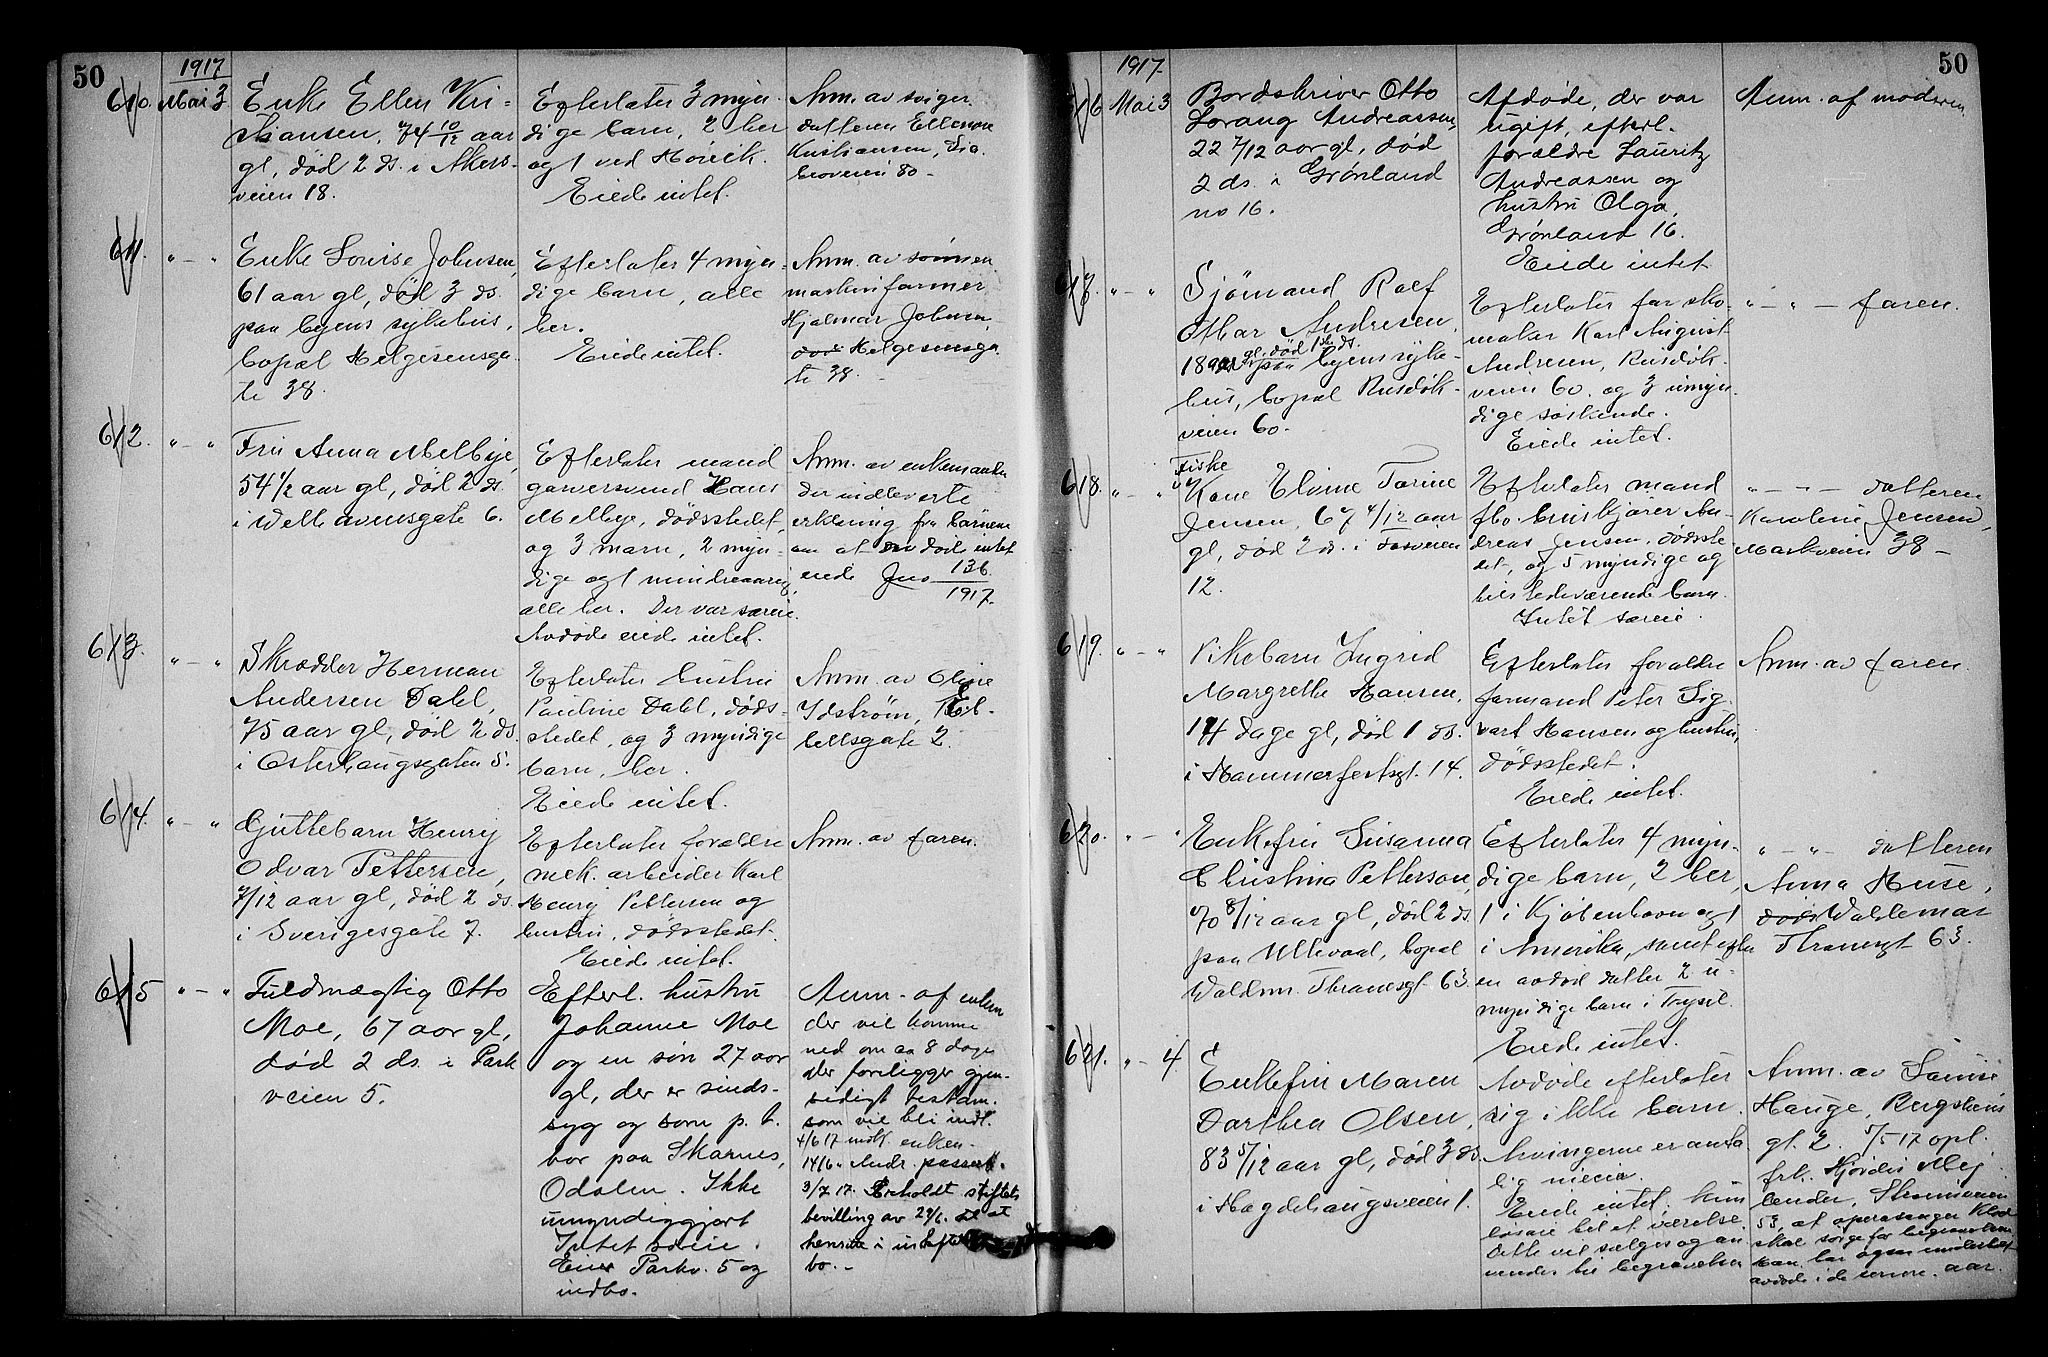 50
1917
610. Mai 3
Enke Ellen Kri-
stiansen, 74 10/12 aar
gl, død 2 ds. i Akers-
veien 18.
Efterlater 3 myn-
dige barn, 2 her
og 1 ved Høvik.
Eiede intet.
Anm. av sviger-
datteren Ellenore
Kristiansen,
broveien 80 -
611. " - "
Enke Lovise Johnsen,
61 aar gl, død 3 ds.
paa byens sykehus,
bopæl Helgesensga-
te 38.
Efterlater 4 myn-
dige barn, alle
her.
Eiede intet.
Anm. av sønnen
maskinformer
Hjalmar Johnsen,
Helgesensga-
te 38. -
612. " - "
Fru Anna Melbye,
54 1/2 aar gl, død 2 ds.
i Welhavensgate 6.
Efterlater mand
garversvend Hans
Melbye, dødsstedet,
og 3 marn, 2 myn-
dige og 1 mindreaarig,
alle her. Der var særeie.
Avdøde eiede intet.
Anm. av enkemanden
der indleverte
erklæring fra børnene
om at døde intet
eiede Jno 136
1917.
613. " - "
Skrædder Herman
Andersen Dahl,
75 aar gl, død 2 ds.
i Østerhaugsgaten 5.
Efterlater hustru
Pauline Dahl, døds-
stedet, og 3 myndige
barn, her.
Eiede intet.
Anm. av Oline
Idstrøm,
bellsgate 2.
614. " - "
Guttebarn Henry
Odvar Pettersen,
7/12 aar gl, død 2 ds.
i Sverigesgate 7.
Efterlater forældre
mek. arbeider Karl
Henry Pettersen og
hustru, dødsstedet.
Eiede intet.
Anm. av faren.
615 " - "
Fuldmægtig Otto
Moe, 67 aar gl,
død 2 ds. i Park
veien 5.
Efterl. hustru
Johanne Moe
og en søn 27 aar
gl, der er sinds-
syg og som p. t.
bor paa Skarnes,
Odalen. Ikke
umyndiggjort
Intet særeie.
Eier Parkv. 5 og
indbo.
Anm. af enken
der vil komme
ned om ca 8 dage
der foreligger gjen-
sidigt testam.
som vil bli indl.
4/6 17 indk. enken -
14/6 " Andr. passert.
3/7 17. Erholdt stiftets
bevilling av 29/6. til at
hensitte i uskiftet
bo. -
50
1917.
616 Mai 3
Bordskriver Otto
Lorang Andreassen,
22 7/12 aar gl, død
2 ds. i Grønland
no 16.
Afdøde, der var
ugift, efterl.
forældre Lauritz
Andreassen og
hustru Olga,
Grønland 16.
Eiede intet
Anm. af moderen
617. " - "
Sjømand Rolf
Otmar Andresen,
18 aar gl, død 1ste ds.
paa byens syke-
hus, bopæl Ruseløk-
veien 60.
Efterlater far sko-
maker Karl August
Andresen, Ruseløk-
veien 60. og 3 umyn-
dige søskende.
Eiede intet.
" - " - faren.
618. " - "
Fiske
Kone Elvine Torine
Jensen, 67 4/12 aar
gl, død 2 ds. i Aasveien
12.
Efterlater mand
fhv. bruskjører An-
dreas Jensen, dødsste-
det, og 5 myndige og
hersteds værende barn.
Intet særeie.
" - " - datteren
Karoline Jensen,
Markveien 38 -
619. " - "
Pikebarn Ingrid
Margrethe Hansen,
14 dage gl, død 1 ds.
i Hammerfestgt. 14.
Efterlater forældre
formand Peter Sig-
vart Hansen og hustru,
dødsstedet.
Eiede intet.
Anm. av faren.
620. " - "
Enkefru Susanna
Christina Petterson,
70 8/12 aar gl, død 2 ds.
paa Ullevaal, bopæl
Waldem. Thranesgt 63.
Efterlater 4 myn-
dige barn, 2 her,
1 i Kjøbenhavn og 1
i Amerika, samt efter
en avdød datter 2 u-
myndige barn i Trysil.
Eiede intet.
" - " - datteren
Anna Huse,
Waldemar
Thranesgt 63.
621. " - 4.
Enkefru Maren
Dorthea Olsen,
83 5/12 aar gl, død 3 ds.
i Hægdehaugsveien 1.
Avdøde efterlater
sig ikke barn.
Arvingerne er anta-
lig nieier.
Eiede intet, kun
løsøre til et værelse.
Dette vil sælges og an-
vendes til begravelsen
Anm. av Lovise
Hauge, Bergsliens
gt. 2. 5/5 17 opl.
frk. Hjørdis Mej-
lender,
53, at operasanger
skal sørge for begravelsen
han har ogsaa underholdt
avdøde i de senere aar.